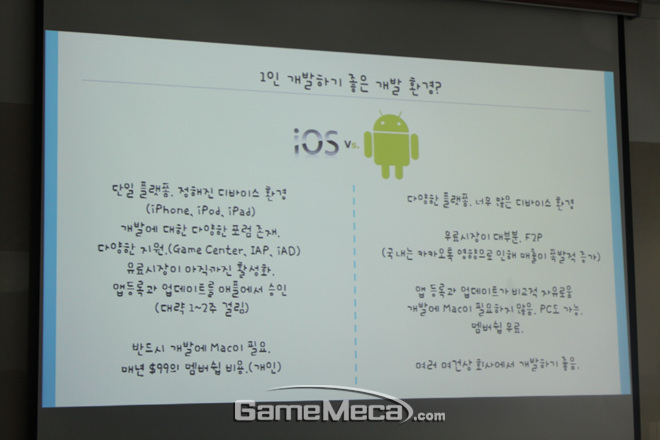 1인 개발하기 좋은 개발 환경?
iOS vs.
단일 플랫폼. 정해진 디바이스 환경
(iPhone, iPod, iPad)
개발에 대한 다양한 포럼 존재.
다양한 지원.(Game Center, IAP, iAD)
유료시장이 아직까진 활성화.
앱 등록과 업데이트를 애플에서 승인
(대략 1~2주 걸림)
반드시 개발에 Mac이 필요.
매년 $99의 멤버쉽 비용.(개인)
다양한 플랫폼. 너무 많은 디바이스 환경
무료시장이 대부분. F2P
(국내는 카카오톡 영향으로 인해 매출이 폭발적 증가)
앱 등록과 업데이트가 비교적 자유로움
개발에 Mac이 필요하지 않음. PC도 가능.
멤버쉽 무료.
여러 여건상 회사에서 개발하기 좋음.
GameMeca.com